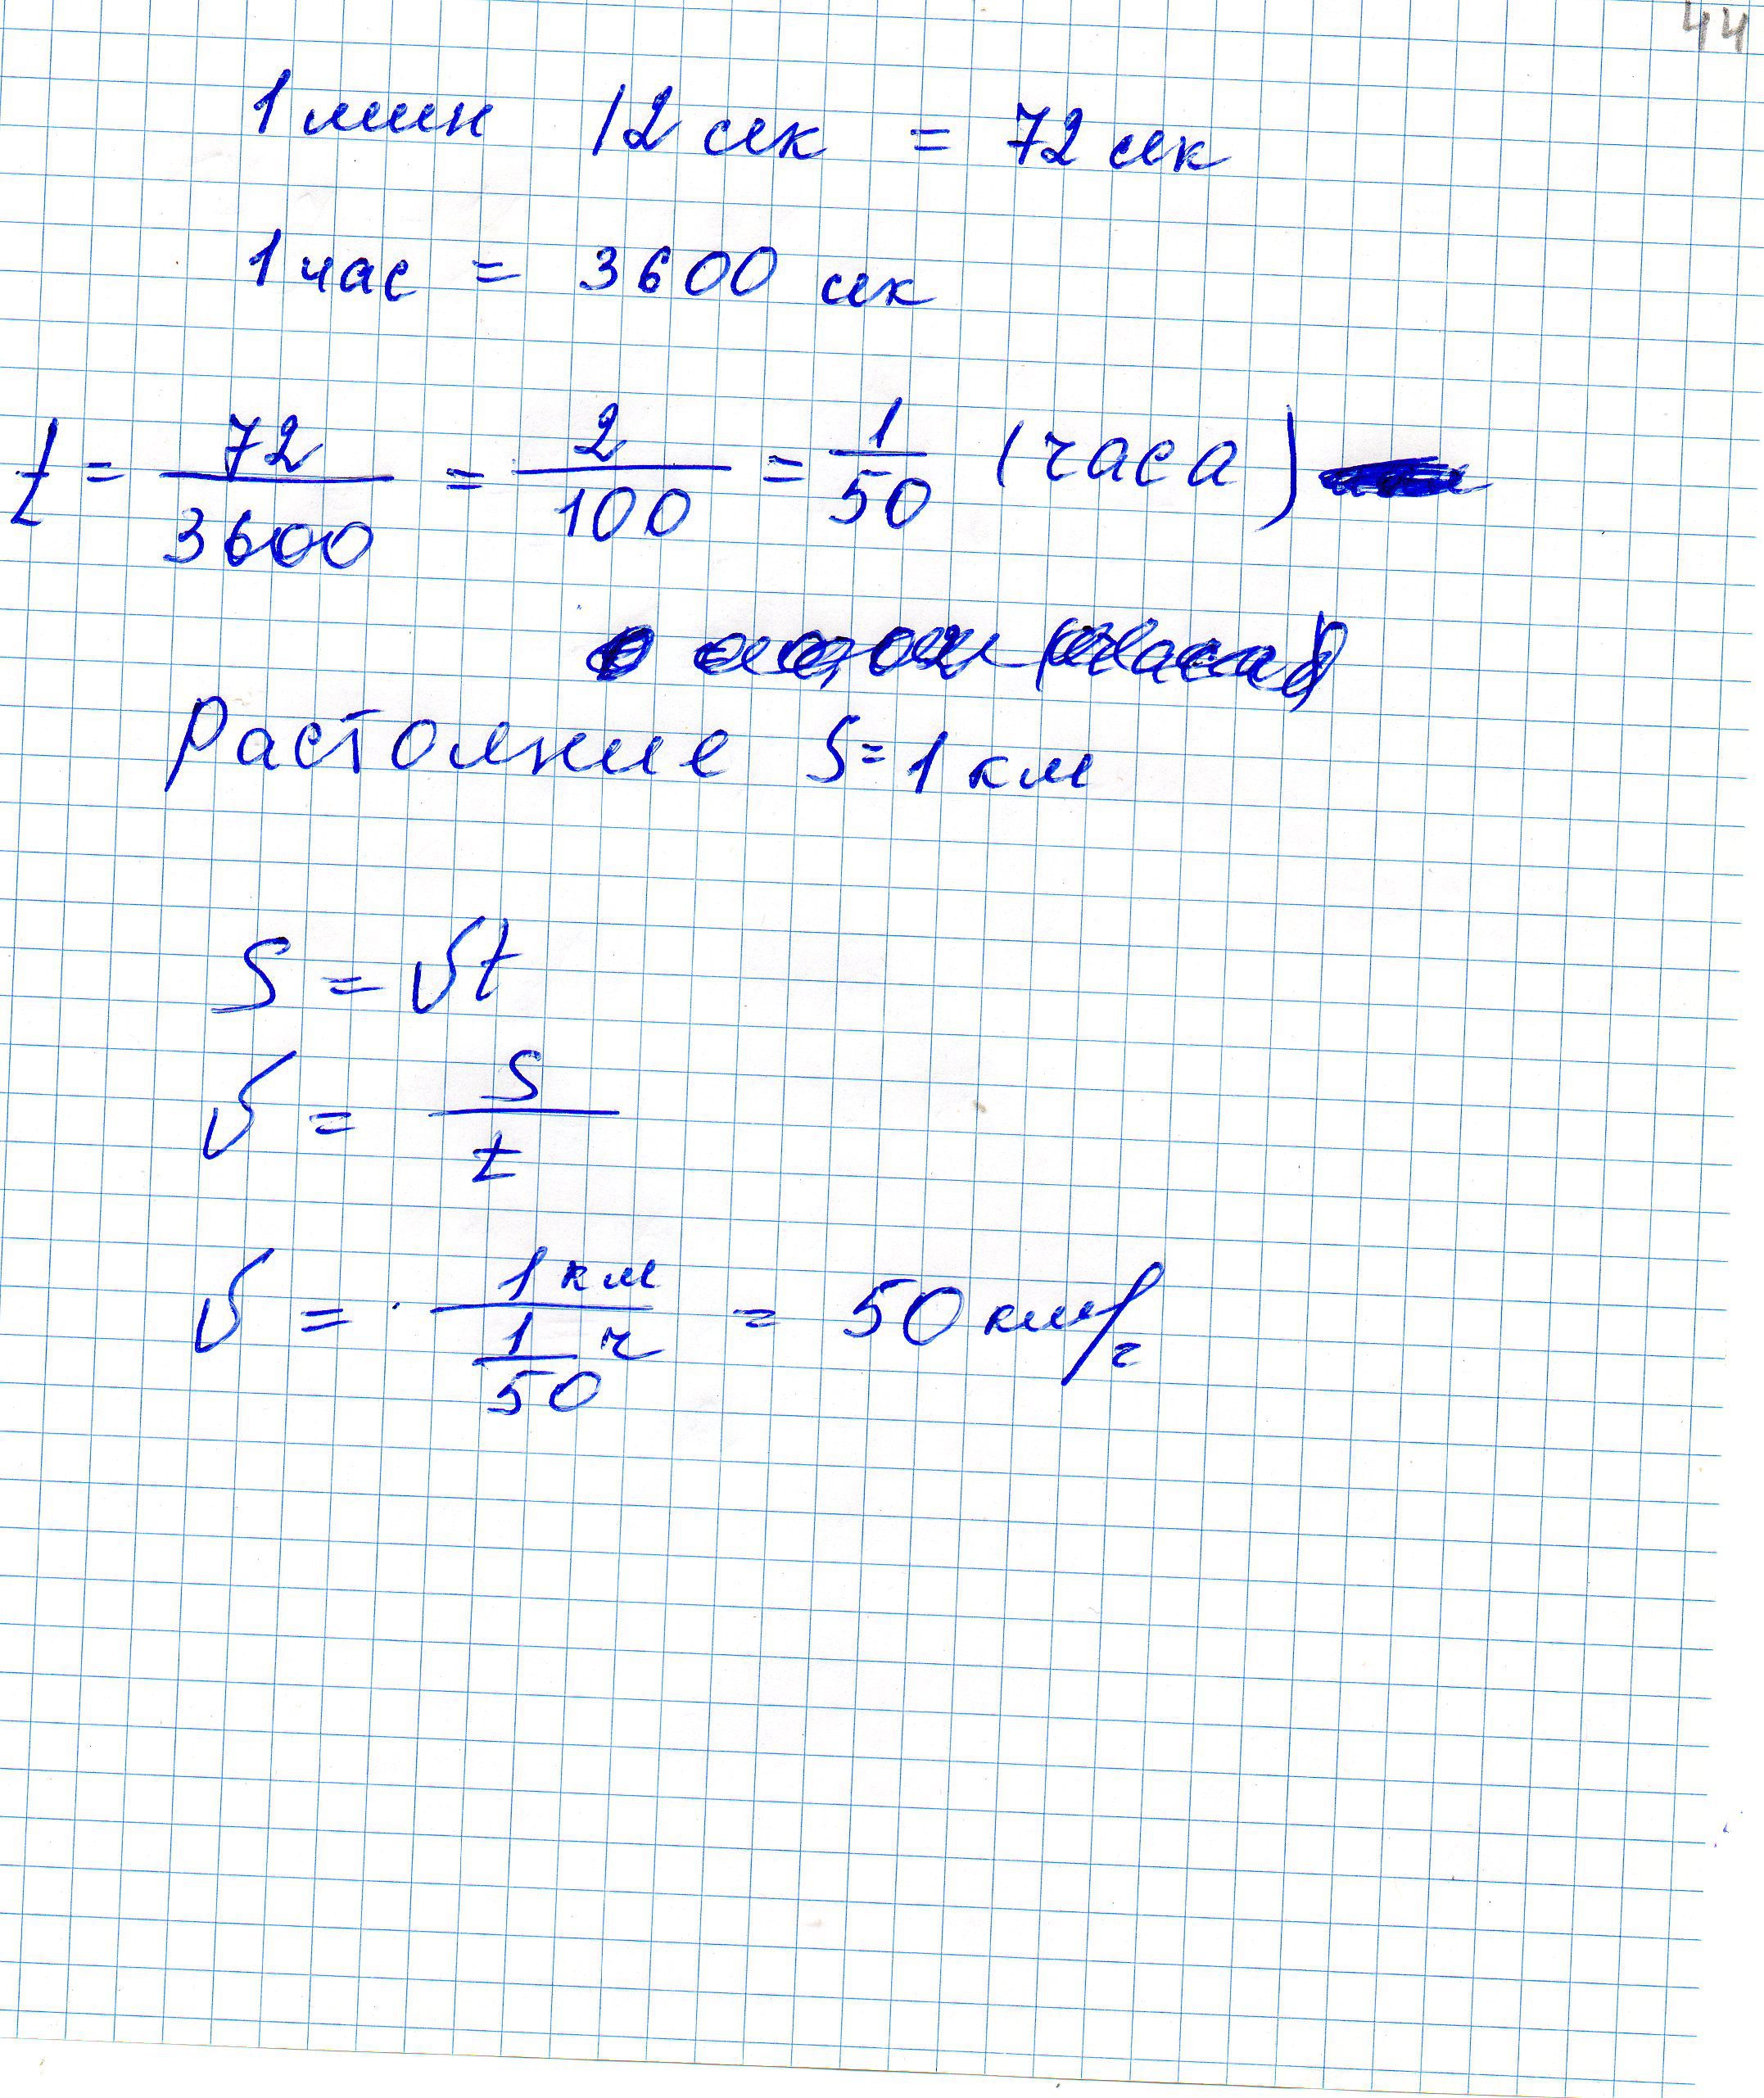 44
1 мин 12 сек = 72 сек
1 час = 3600 сек
t = 72/3600 = 2/100 = 1/50 (часа)
Растояние S = 1 км
S = vt
v = S/t
v = 1 км / 1/50 ч = 50 км/ч